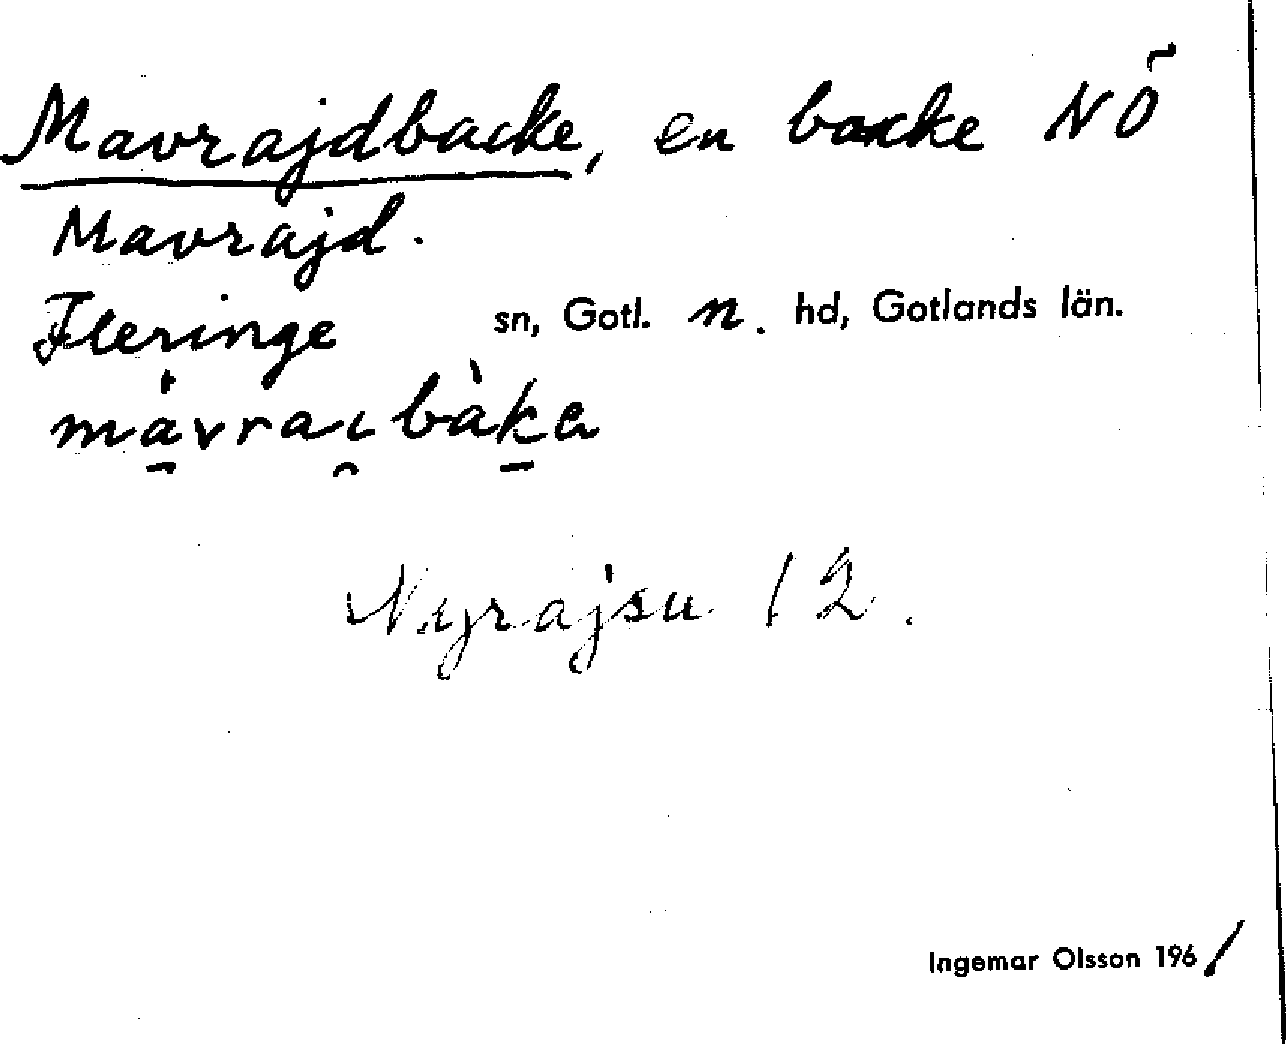 Mavrajdbacke, en backe NÖ
Mavrajd.
Fleringe sn, Gotl. n. hd, Gotlands län.
Nyrajsu 12.
Ingemar Olsson 1961